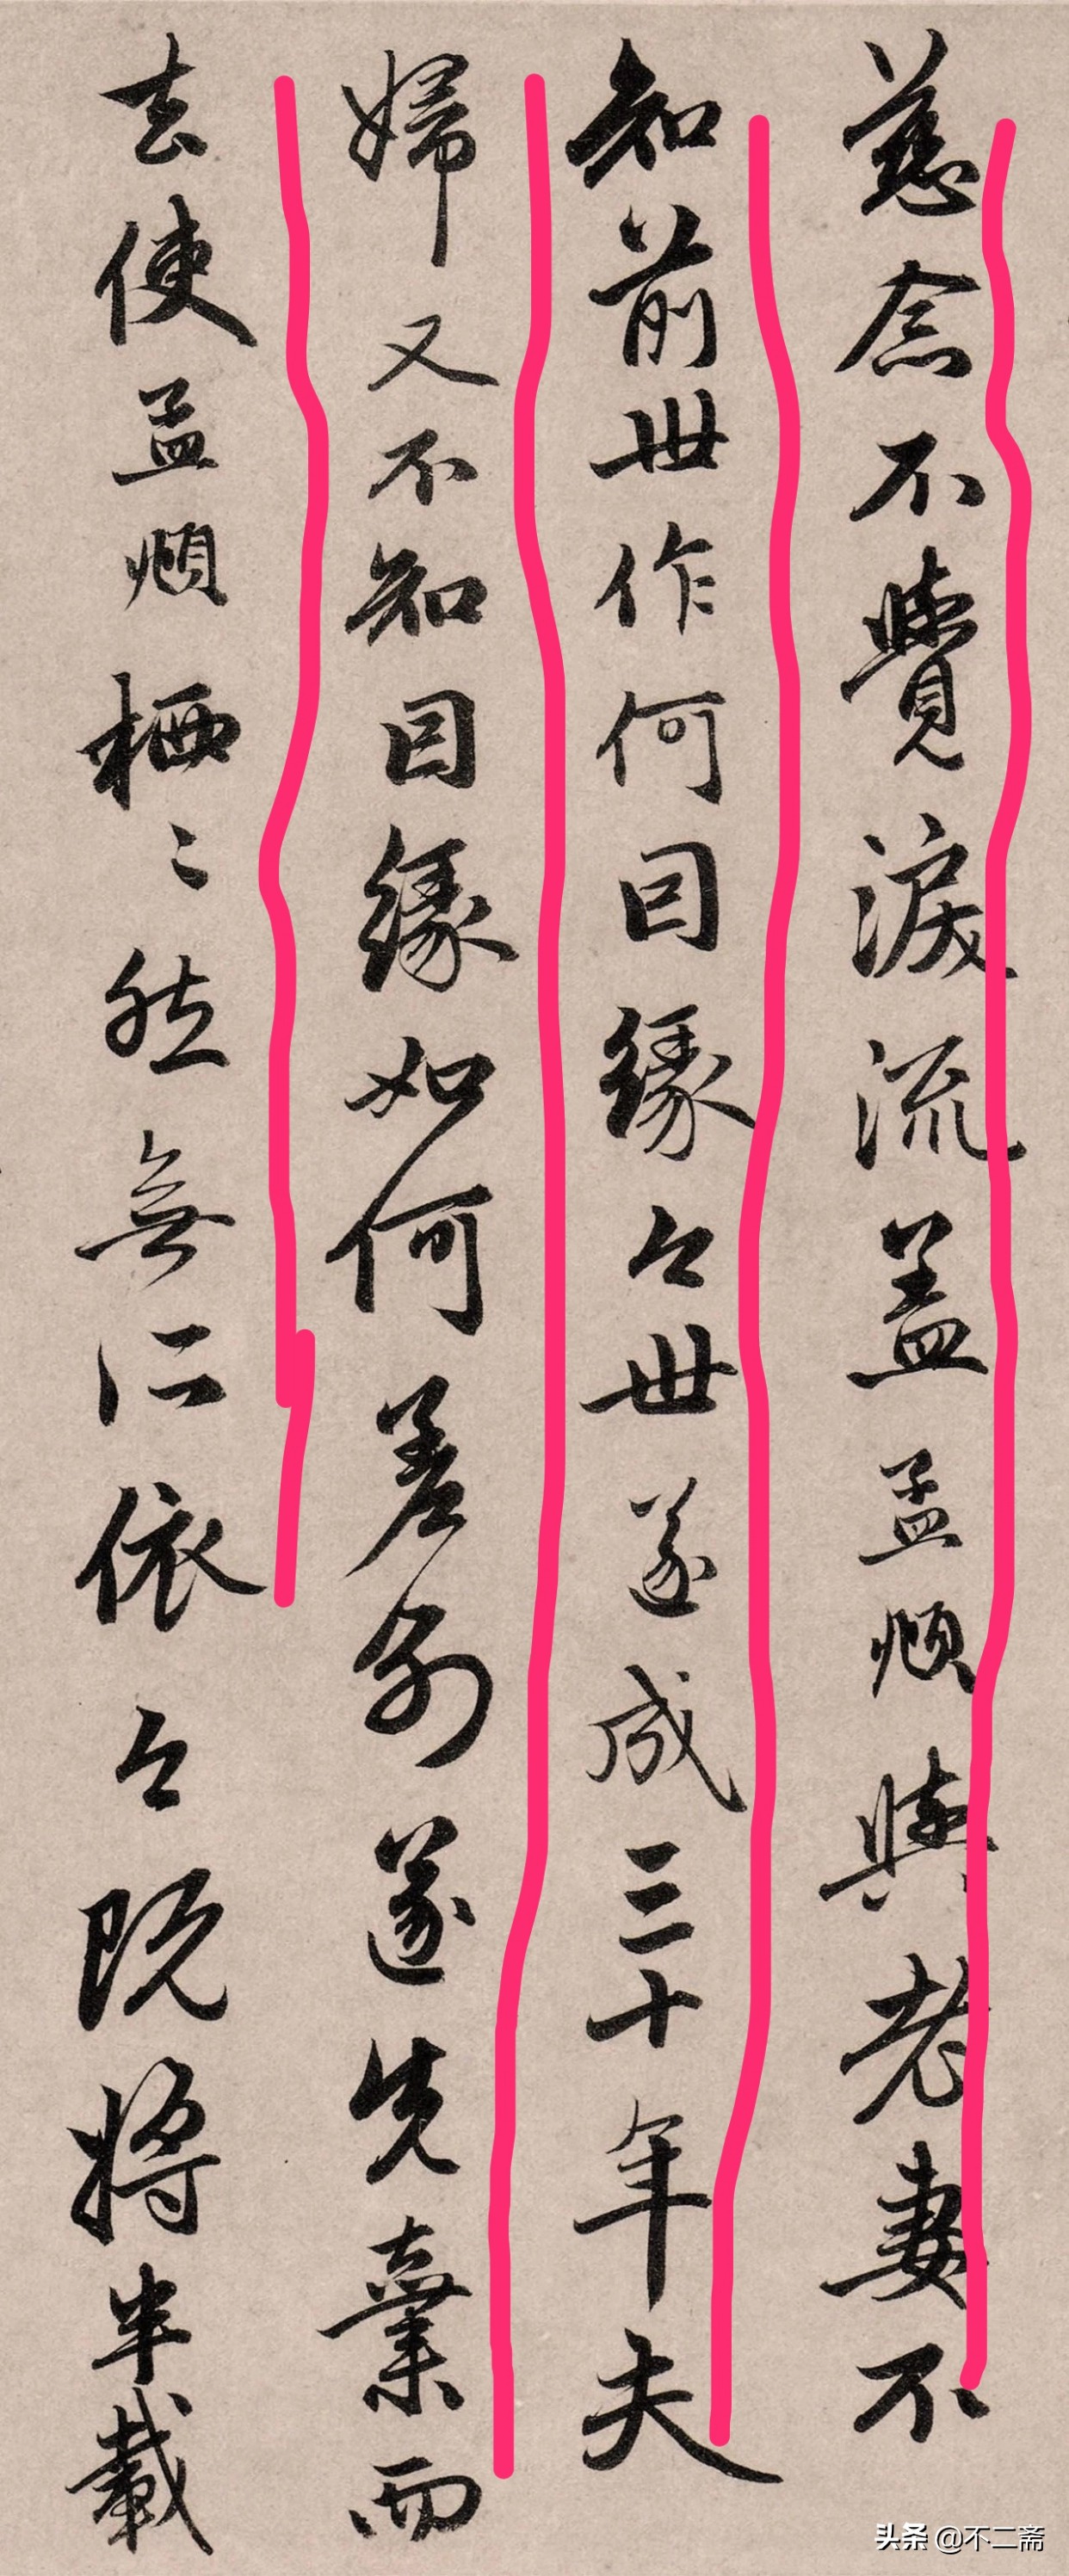 慈念不覺淚流盖孟頫與老妻不
知前世作何因緣今世遂成三十年夫
婦又不知因緣如何差別遂先棄而
去使孟頫栖〻然無所依今既將半載
头条 @不二斋